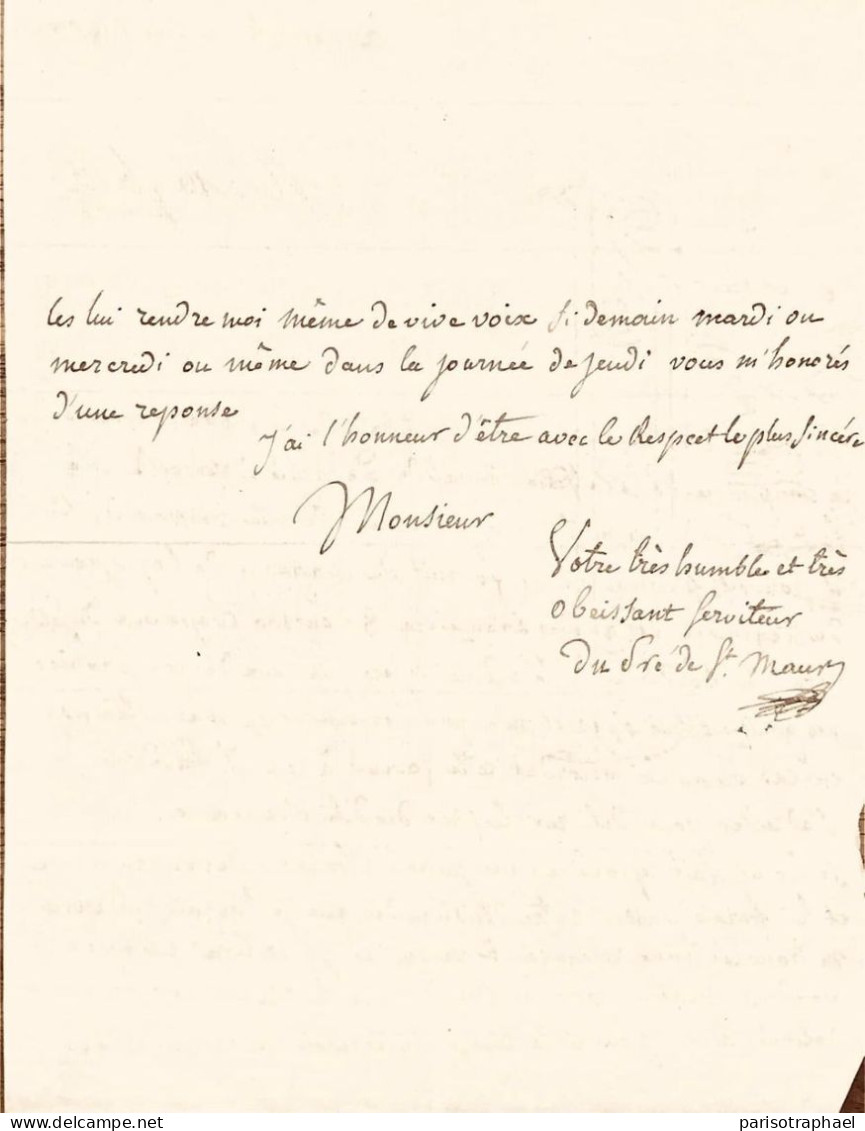 les lui rendre moi même de vive voix si demain mardi ou
mercredi ou même dans la journée de jeudi vous m'honorés
d'une reponse
J'ai l'honneur d'être avec le Respect le plus sincére
Monsieur
Votre très humble et très
obeissant serviteur
Du Pré de St. Maur
delcampe.net
parisotraphael